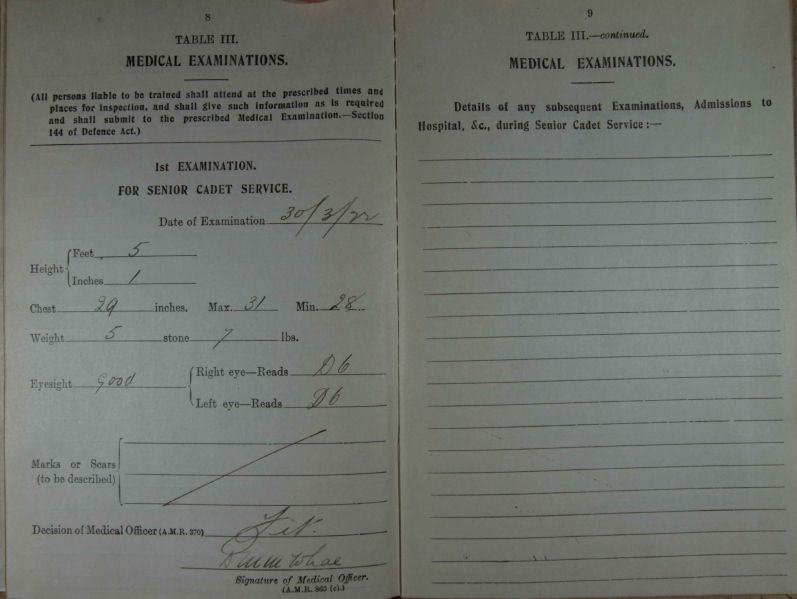 8
TABLE III.
MEDICAL EXAMINATIONS.
(All persons liable to be trained shall attend at the prescribed times and
places for inspection, and shall give such information as is required
and shall submit to the prescribed Medical Examination.—Section
144 of Defence Act.)
1st EXAMINATION.
FOR SENIOR CADET SERVICE.
Date of Examination 30/3/22
Height Feet 5
Inches 1
Chest 29 inches. Max. 31 Min. 28
Weight 5 stone 7 lbs.
Eyesight good Right eye—Reads D6
Left eye—Reads D6
Marks or Scars
(to be described)
Decision of Medical Officer (A.M.R. 370) Fit.
Signature of Medical Officer.
(A.M.R. 365 (c).)
9
TABLE III.—continued.
MEDICAL EXAMINATIONS.
Details of any subsequent Examinations, Admissions to
Hospital, &c., during Senior Cadet Service:—